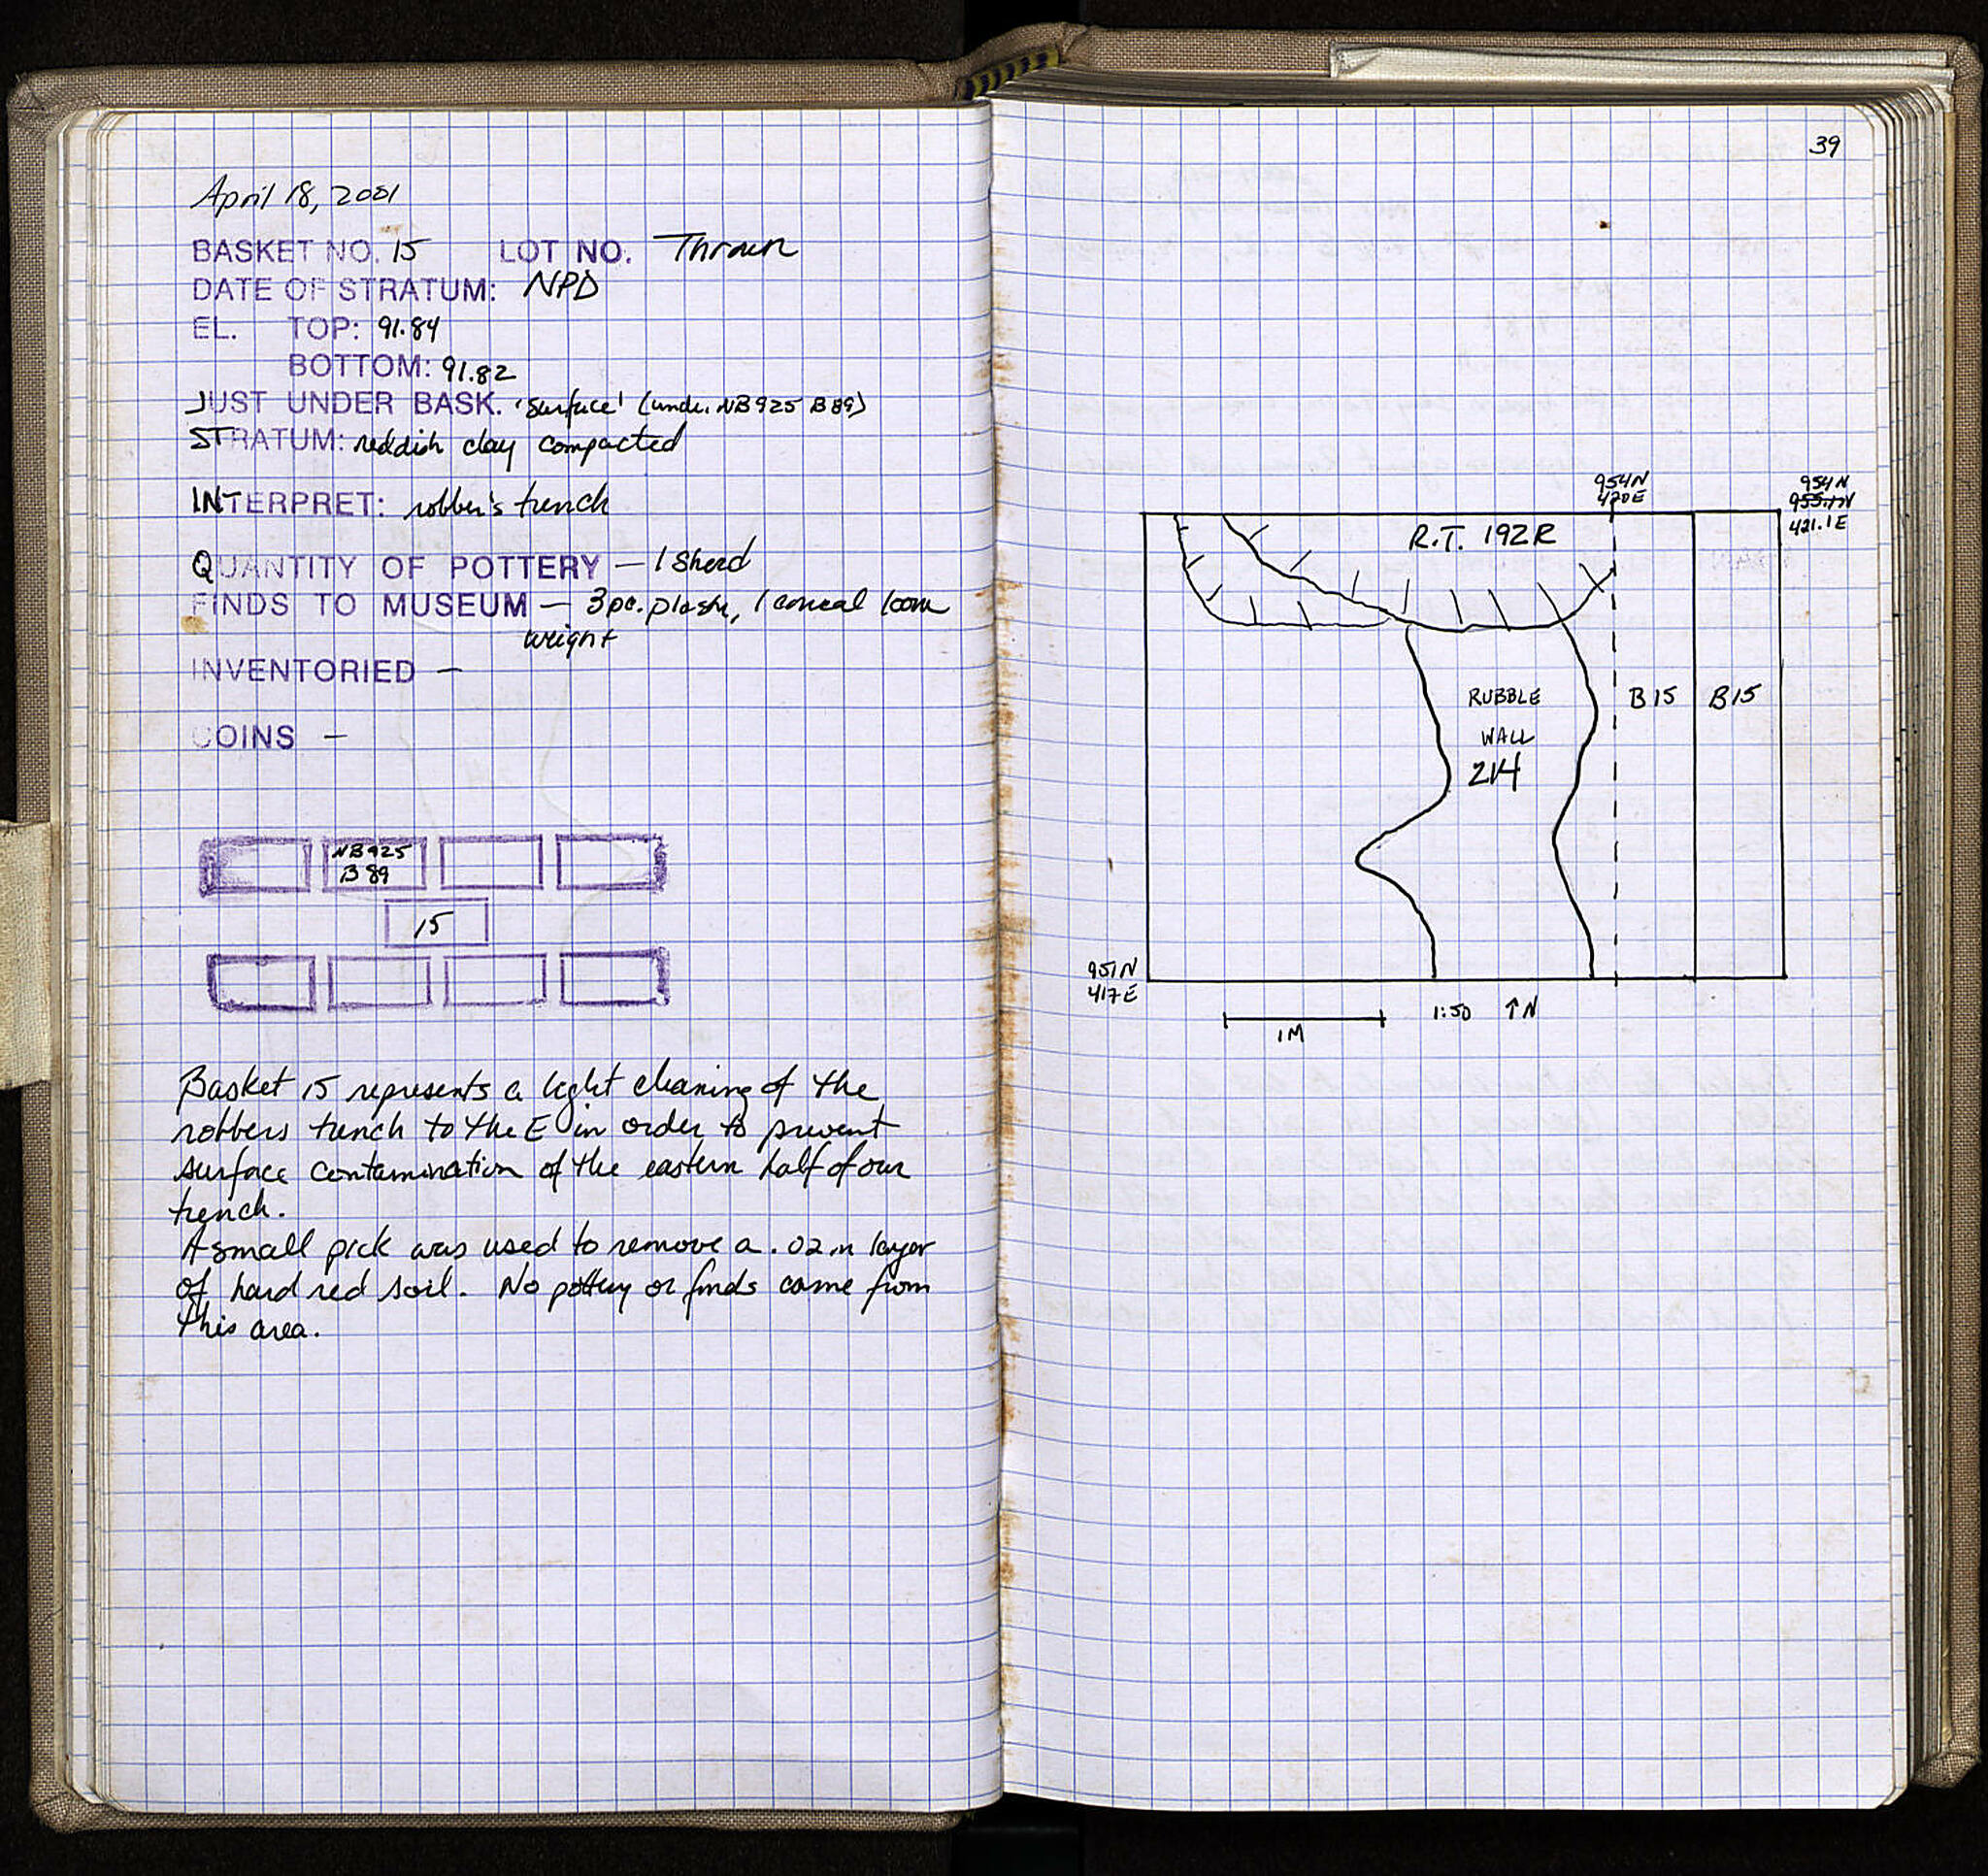 April 18, 2001
BASKET NO. 15 LOT NO. Thrown
DATE OF STRATUM: NPD
EL. TOP: 91.84
BOTTOM: 91.82
JUST UNDER BASK. 'surface' (under NB925 B89)
STRATUM: reddish clay compacted
INTERPRET: robber's trench
QUANTITY OF POTTERY — 1 sherd
FINDS TO MUSEUM — 3 pc. plaster, 1 conical loom
weight
INVENTORIED —
COINS —
NB925
B 89
15
Basket 15 represents a light cleaning of the
robbers trench to the E in order to prevent
surface contamination of the eastern half of our
trench.
A small pick was used to remove a .02 m layer
of hard red soil. No pottery or finds came from
this area.
39
954N
420E
954N
421.1E
R.T. 192R
RUBBLE
WALL
214
B15
B15
951N
417E
1M
1:50 ↑N